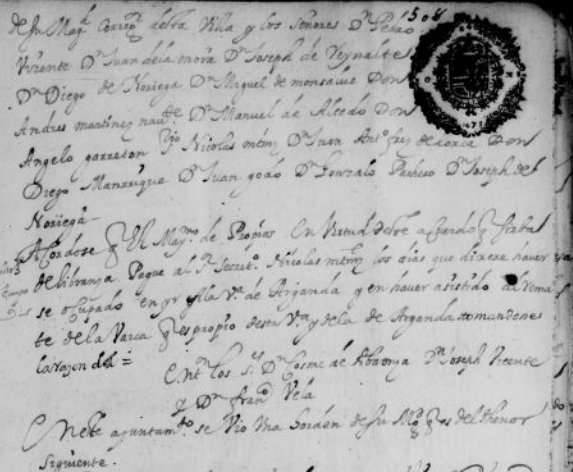 de su Mag.d Correg.r desta Villa y los señores D.n Pedro
Vizente D.n Juan de la mora D.n Joseph de Reynalte
D.n Diego de Noriega D.n Miguel de monsalue Don
Andres martinez nau.te D.n Manuel de Alcedo Don
Angelo garreton Nicolas mrnz D.n Juan Ant.o frz de lorca Don
Diego Manrrique D.n Juan godo D.n Gonzalo Pacheco D.n Joseph del
Noriega
Acordose q El May.mo de Propios en Virtud deste acuerdo q sirba
de libranza Pague al S.r Secret.o Nicolas mrnz los dias que dixere haver
se ocupado en yr a la V.a de Arganda y en haver asistido al Rema
te de la Varca q es propio desta V.a y de la de Arganda tomandose
la razon del =
Ent.n los S.s D.n Cosme de Abaonza D.n Joseph Vicente
y D.n fran.co Vela
En este ayuntam.to se Vio Una horden de su Mg.d q es del thenor
siguiente.